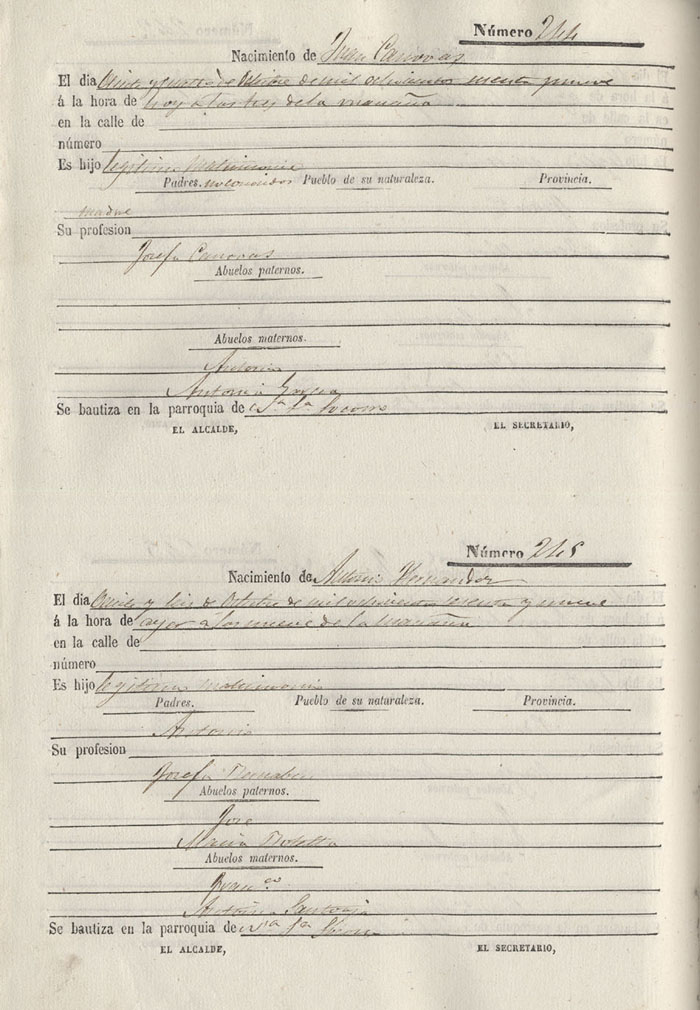 Número 244
Nacimiento de Juan Canovas
El dia de Octubre de mil ochocientos sesenta y nueve
á la hora de hoy a las tres de la mañana
en la calle de
número
Es hijo legitimo matrimonio
Padres. no conocidos Pueblo de su naturaleza. Provincia.
madre
Su profesion
Josefa Canovas
Abuelos paternos.
Abuelos maternos.
Antonio
Antonia
Se bautiza en la parroquia de
EL ALCALDE, EL SECRETARIO,
Número 245
Nacimiento de Antonio
El dia y seis de Octubre de mil ochocientos sesenta y nueve
á la hora de ayer a las nueve de la mañana
en la calle de
número
Es hijo legitimo matrimonio
Padres. Pueblo de su naturaleza. Provincia.
Antonio
Su profesion
Josefa
Abuelos paternos.
Jose
Maria
Abuelos maternos.
Franco
Antonia Santonja
Se bautiza en la parroquia de
EL ALCALDE, EL SECRETARIO,